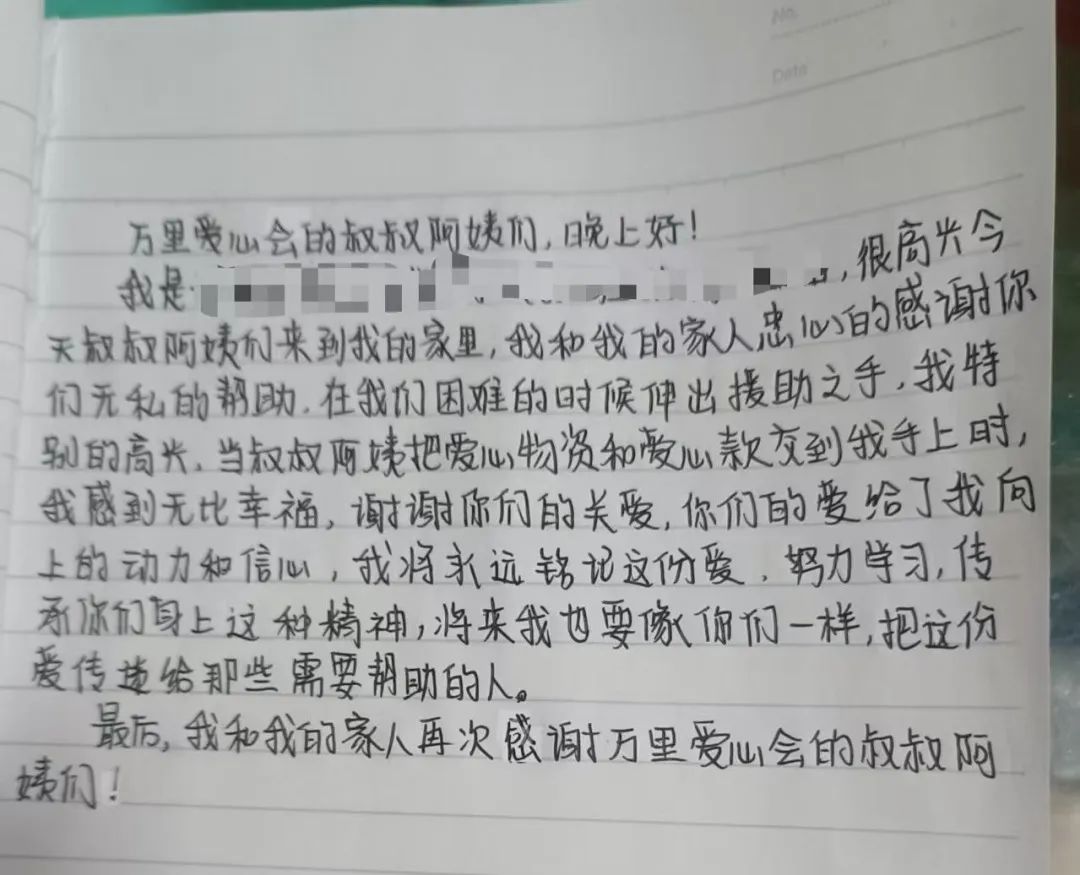 No.
Date
万里爱心会的叔叔阿姨们，晚上好！
我是，很高兴今
天叔叔阿姨们来到我的家里，我和我的家人忠心的感谢你
们无私的帮助．在我们困难的时候伸出援助之手．我特
别的高兴．当叔叔阿姨把爱心物资和爱心款交到我手上时，
我感到无比幸福，谢谢你们的关爱，你们的爱给了我向
上的动力和信心，我将永远铭记这份爱．努力学习，传
承你们身上这种精神，将来我也要像你们一样，把这份
爱传递给那些需要帮助的人。
最后，我和我的家人再次感谢万里爱心会的叔叔阿
姨们！